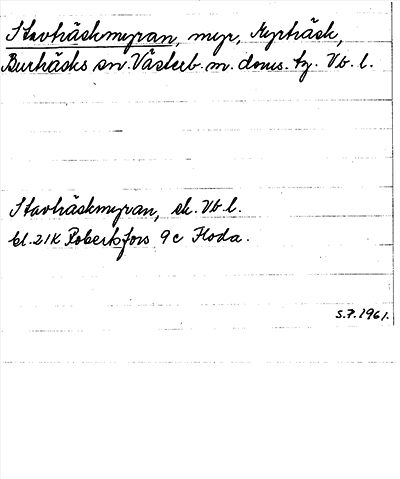 Stavträskmyran, myr, Myrträsk,
Burträsks sn. Västerb. m. doms. tg. Vb. l.
Stavträskmyran, ek. Vb l.
bl. 21K Robertsfors 9c Floda.
S.F. 1961.